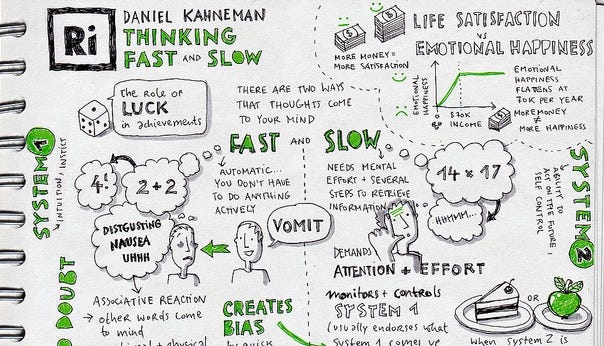 Ri
DANIEL KAHNEMAN
THINKING
FAST AND SLOW
The role of
LUCK
in achievements
THERE ARE TWO WAYS
THAT THOUGHTS COME
TO YOUR MIND
LIFE SATISFACTION
VS
EMOTIONAL HAPPINESS
MORE MONEY =
MORE SATISFACTION
EMOTIONAL
HAPPINESS
$70K
INCOME
EMOTIONAL
HAPPINESS
FLATTENS AT
70K PER YEAR
MORE MONEY
≠ MORE HAPPINESS
FAST AND SLOW
SYSTEM 1
INTUITION, INSTICT
4!
2+2
AUTOMATIC...
YOU DON'T HAVE
TO DO ANYTHING
ACTIVELY
DISTGUSTING
NAUSEA
UHHH
VOMIT
ASSOCIATIVE REACTION
→ other words come
to mind
DOUBT
CREATES
BIAS
by quick
NEEDS MENTAL
EFFORT + SEVERAL
STEPS TO RETRIEVE
INFORMATION
14 × 17
DEMANDS
ATTENTION + EFFORT
monitors + controls
SYSTEM 1
(usually endorses what
System 1 comes up
SYSTEM 2
ABILITY TO
ACT ON THE FUTURE,
SELF CONTROL
OR
When System 2 is